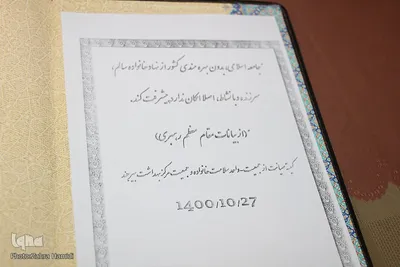 جامعه اسلامی، بدون بهره مندی کشور از نهاد خانواده سالم،
سرزنده و بانشاط، اصلا امکان ندارد پیشرفت کند.
(از بیانات مقام معظم رهبری)
جمعیت، واحد سلامت خانواده و جمعیت مرکز بهداشت بیرجند
1400/10/27
iqna
Photo:Zahra Hamidi